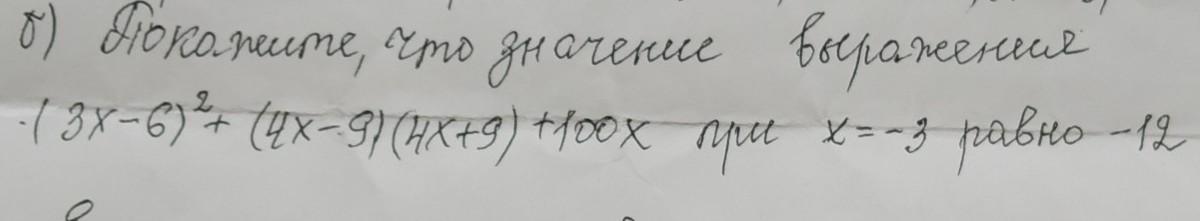 б) Покажите, что значение выражения
(3x-6)²+(4x-9)(4x+9)+100x при x=-3 равно -12